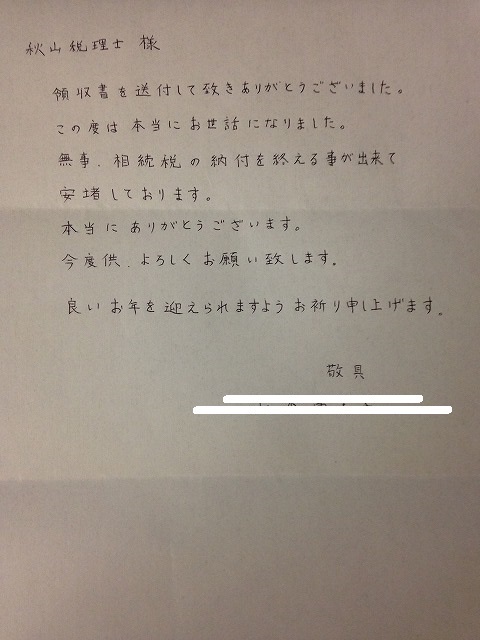 秋山税理士 様
領収書を送付して致きありがとうございました。
この度は本当にお世話になりました。
無事、相続税の納付を終える事が出来て
安堵しております。
本当にありがとうございます。
今度供、よろしくお願い致します。
良いお年を迎えられますようお祈り申し上げます。
敬具